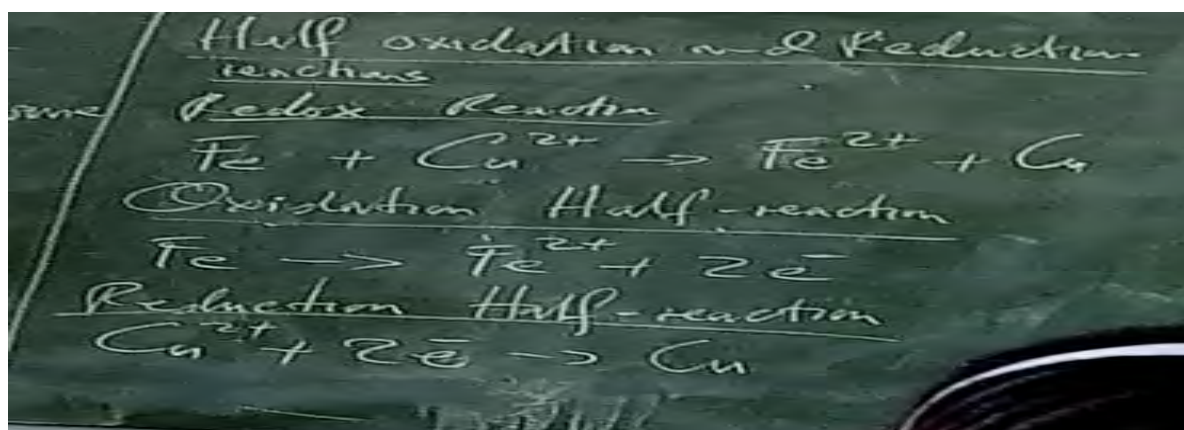 Half oxidation and Reduction
reactions
Redox Reaction
Fe + Cu²⁺ → Fe²⁺ + Cu
Oxidation Half-reaction
Fe → Fe²⁺ + 2e⁻
Reduction Half-reaction
Cu²⁺ + 2e⁻ → Cu